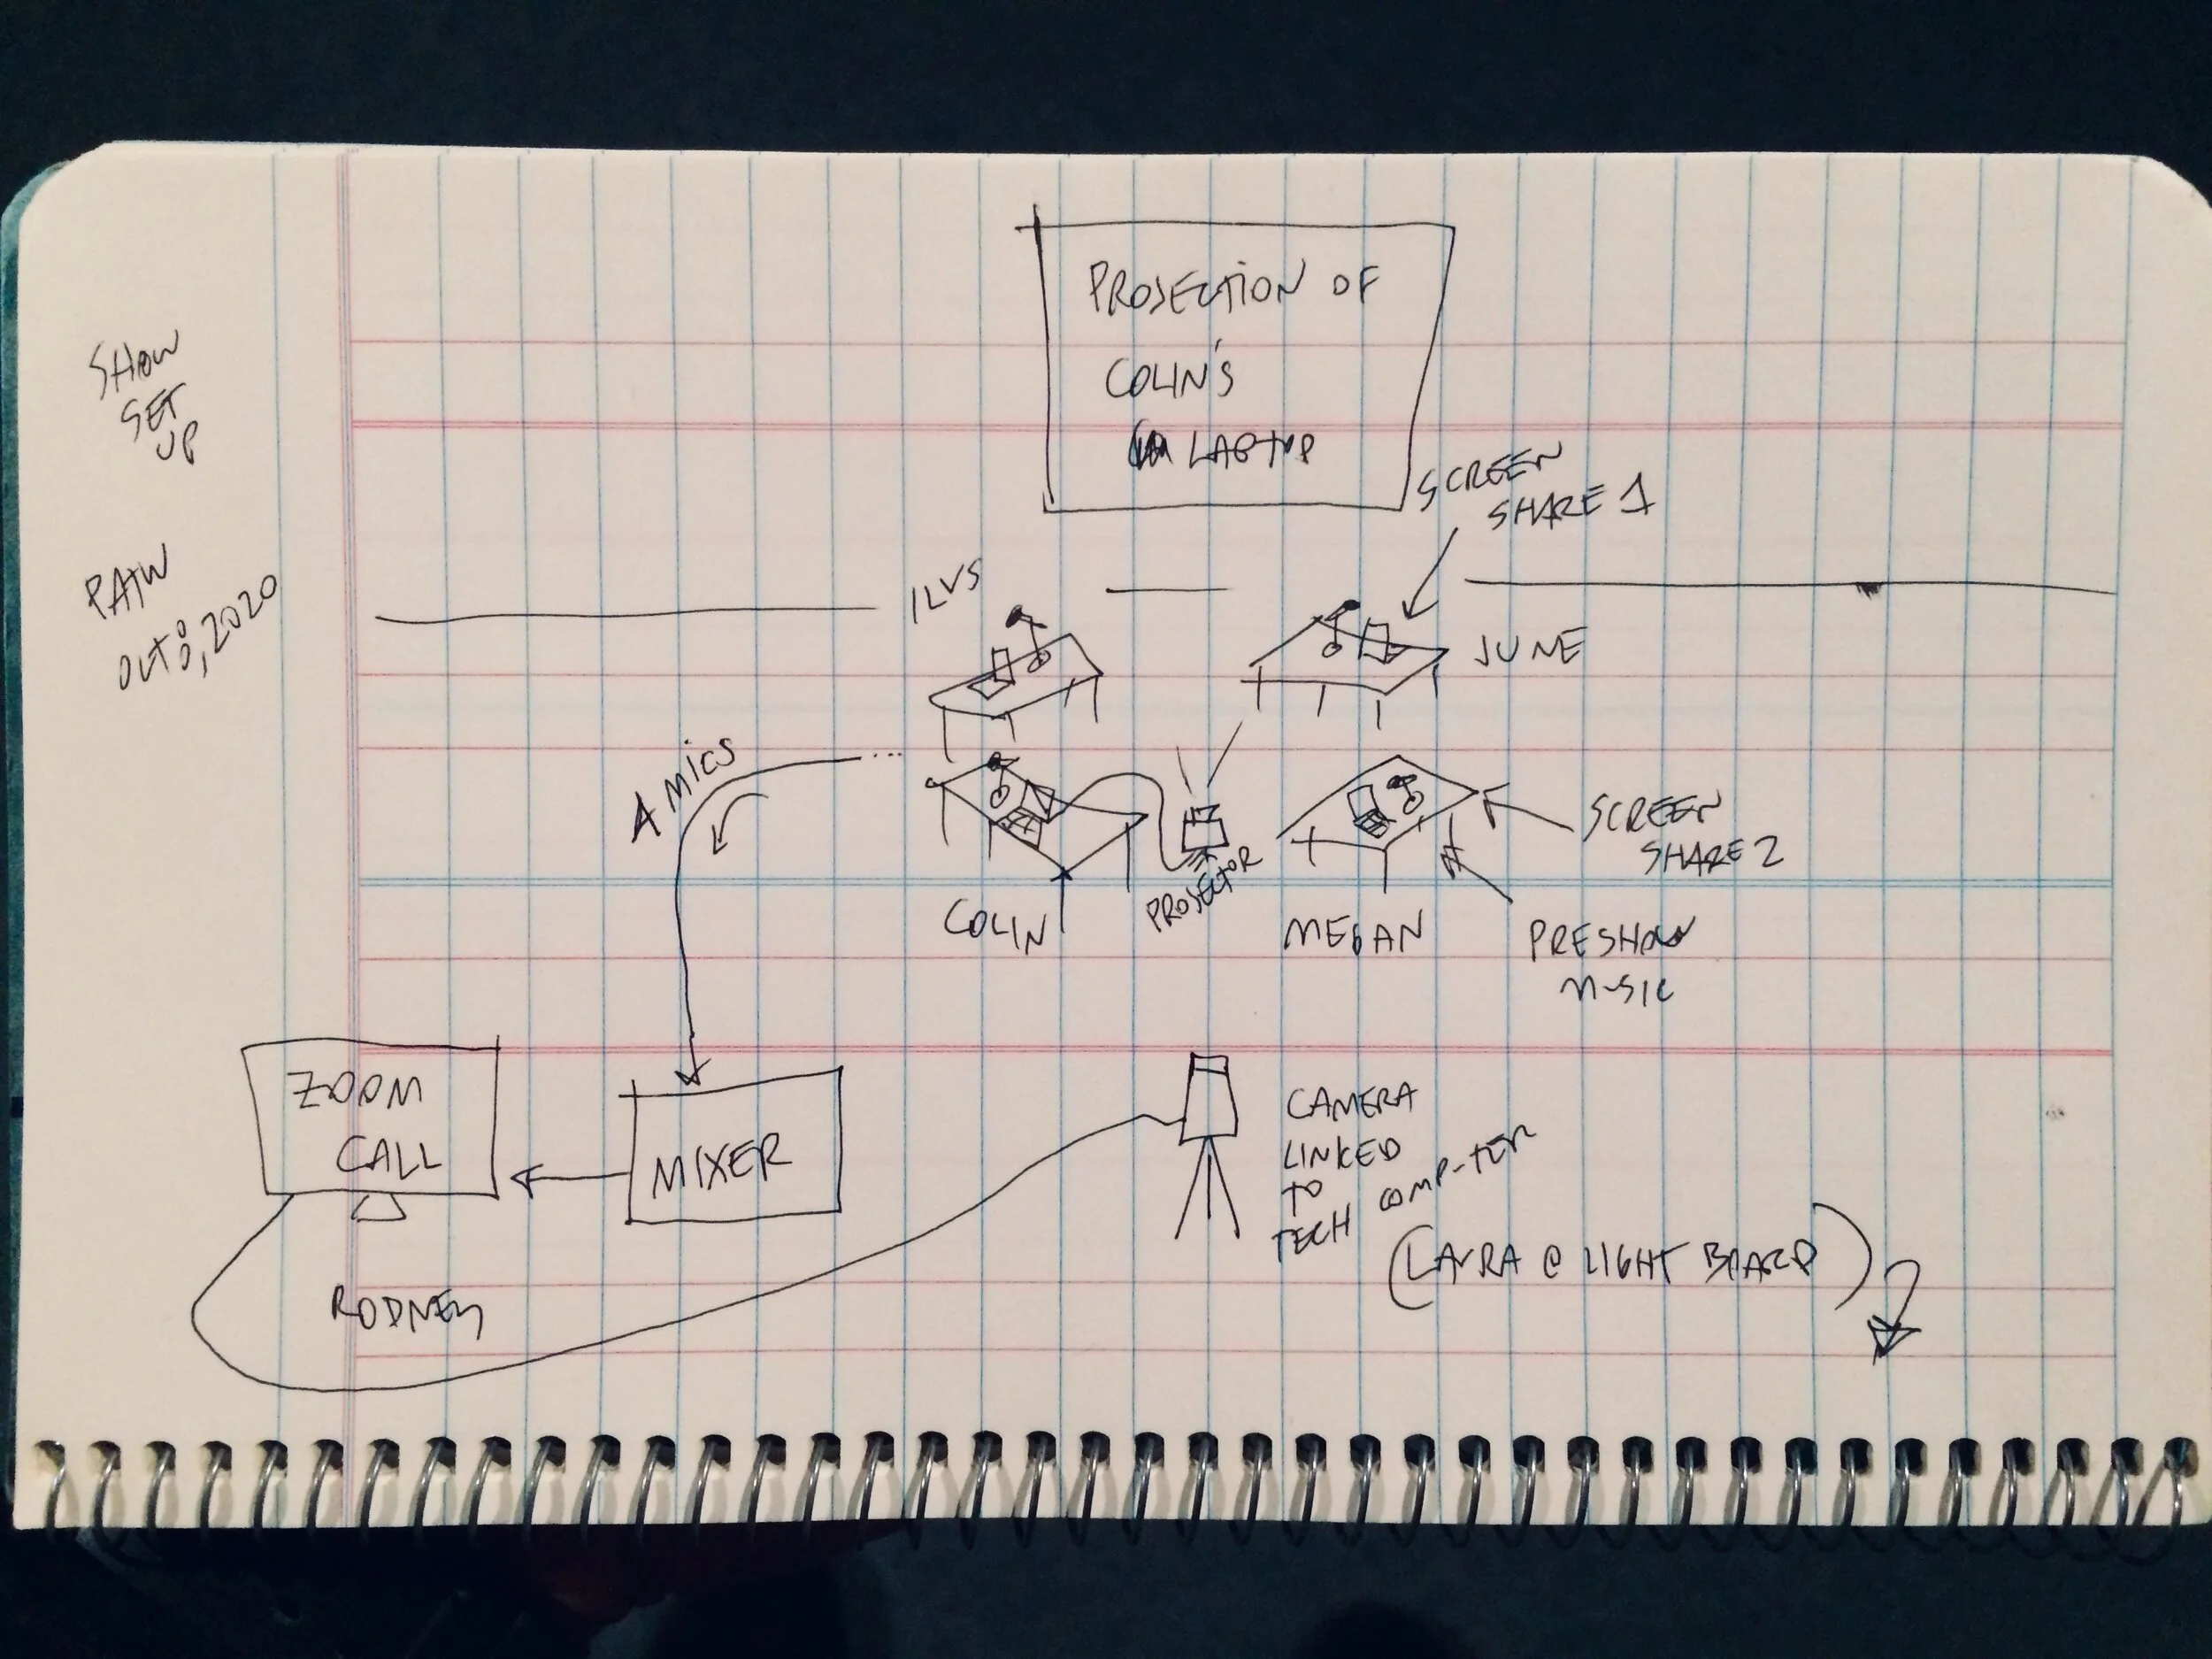 SHOW
SET
UP
PATW
OCT 8, 2020
PROJECTION OF
COLIN'S
LAPTOP
SCREEN
SHARE 1
JUNE
4 MICS
COLIN
PROJECTOR
MEGAN
SCREEN
SHARE 2
PRESHOW
MUSIC
ZOOM
CALL
MIXER
RODNEY
CAMERA
LINKED
TO
TECH COMPUTER
(LAURA @ LIGHT BOARD)